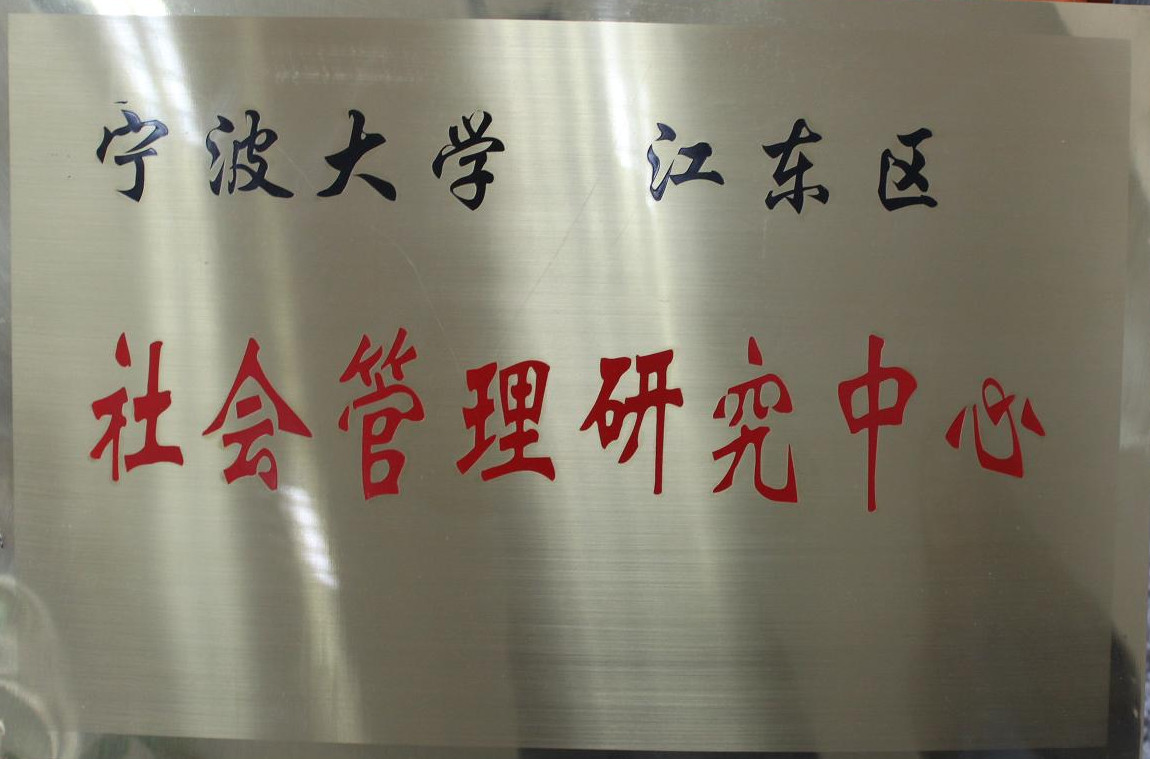 宁波大学 江东区
社会管理研究中心